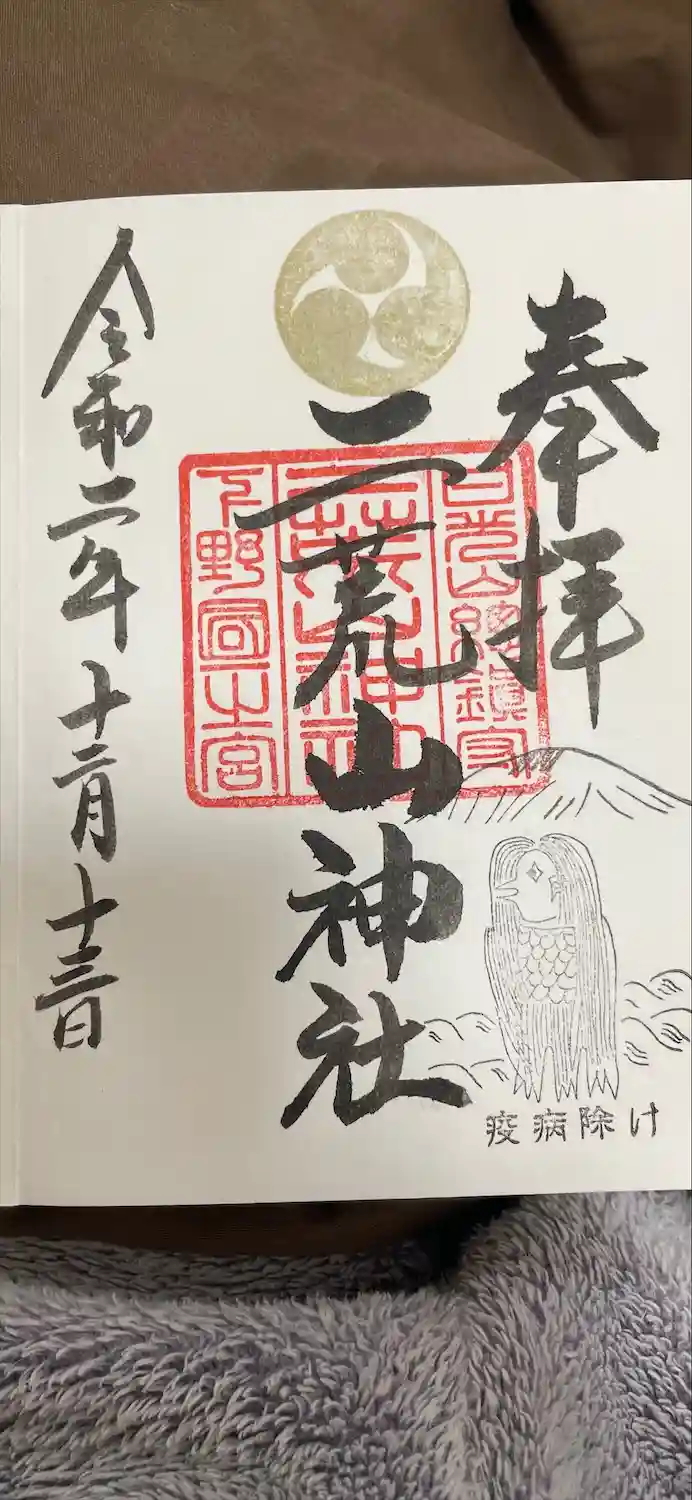 奉拝
日光山総鎮守
二荒山神社
二荒山神社
下野國一之宮
令和二年十二月十三日
疫病除け